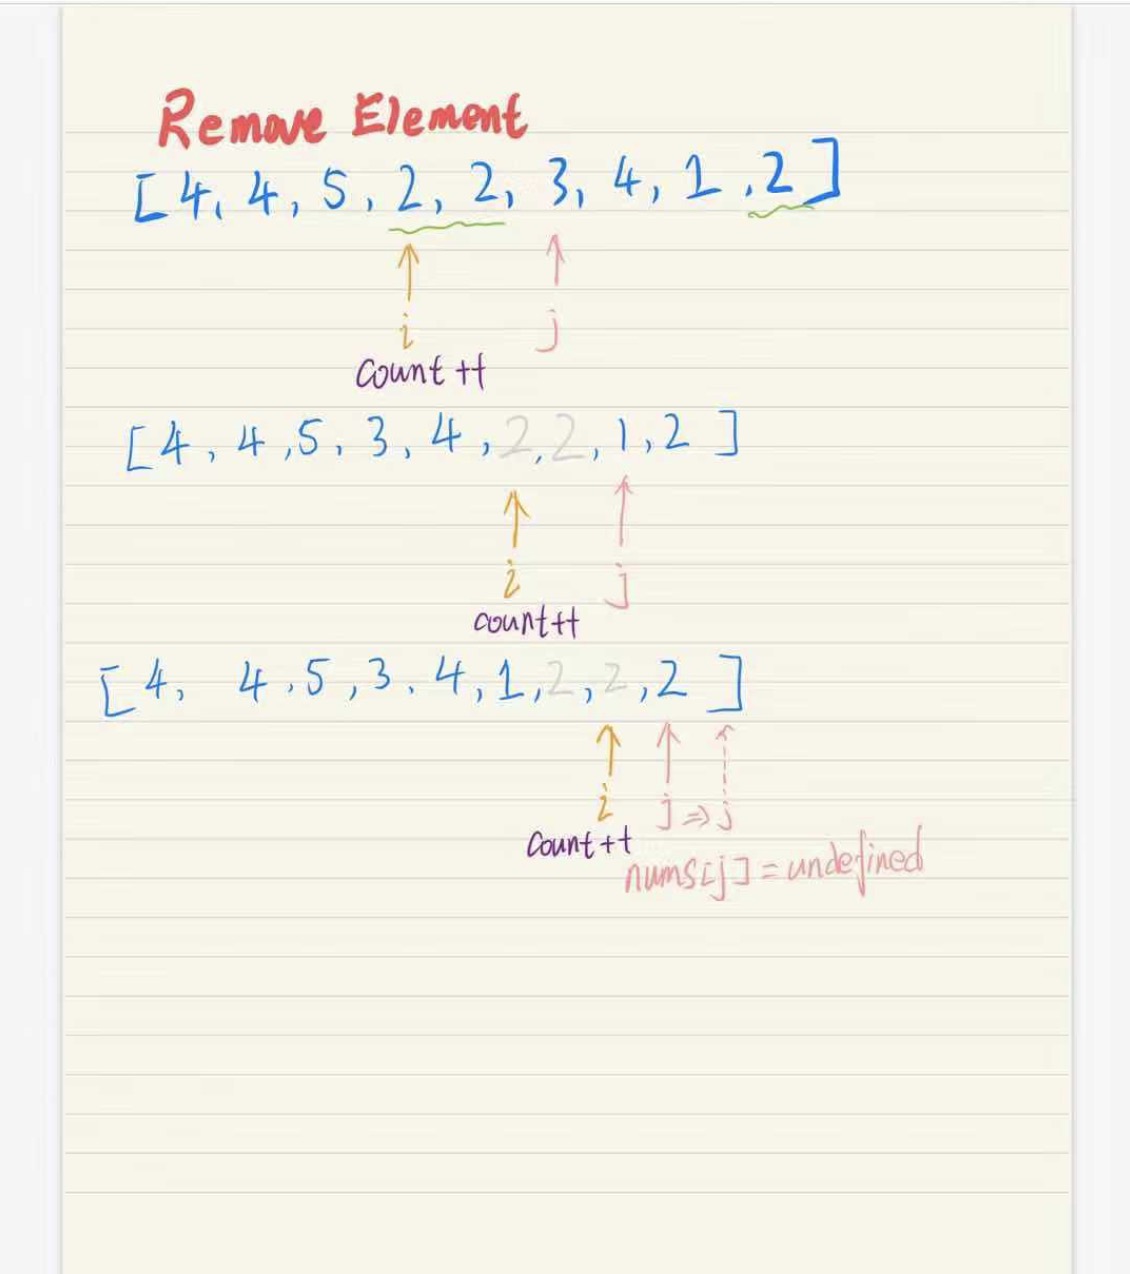 Remove Element
[4, 4, 5, 2, 2, 3, 4, 1, 2]
i j
count++
[4, 4, 5, 3, 4, 2, 2, 1, 2]
i j
count++
[4, 4, 5, 3, 4, 1, 2, 2, 2]
i j ⇒ j
count++
nums[j] = undefined